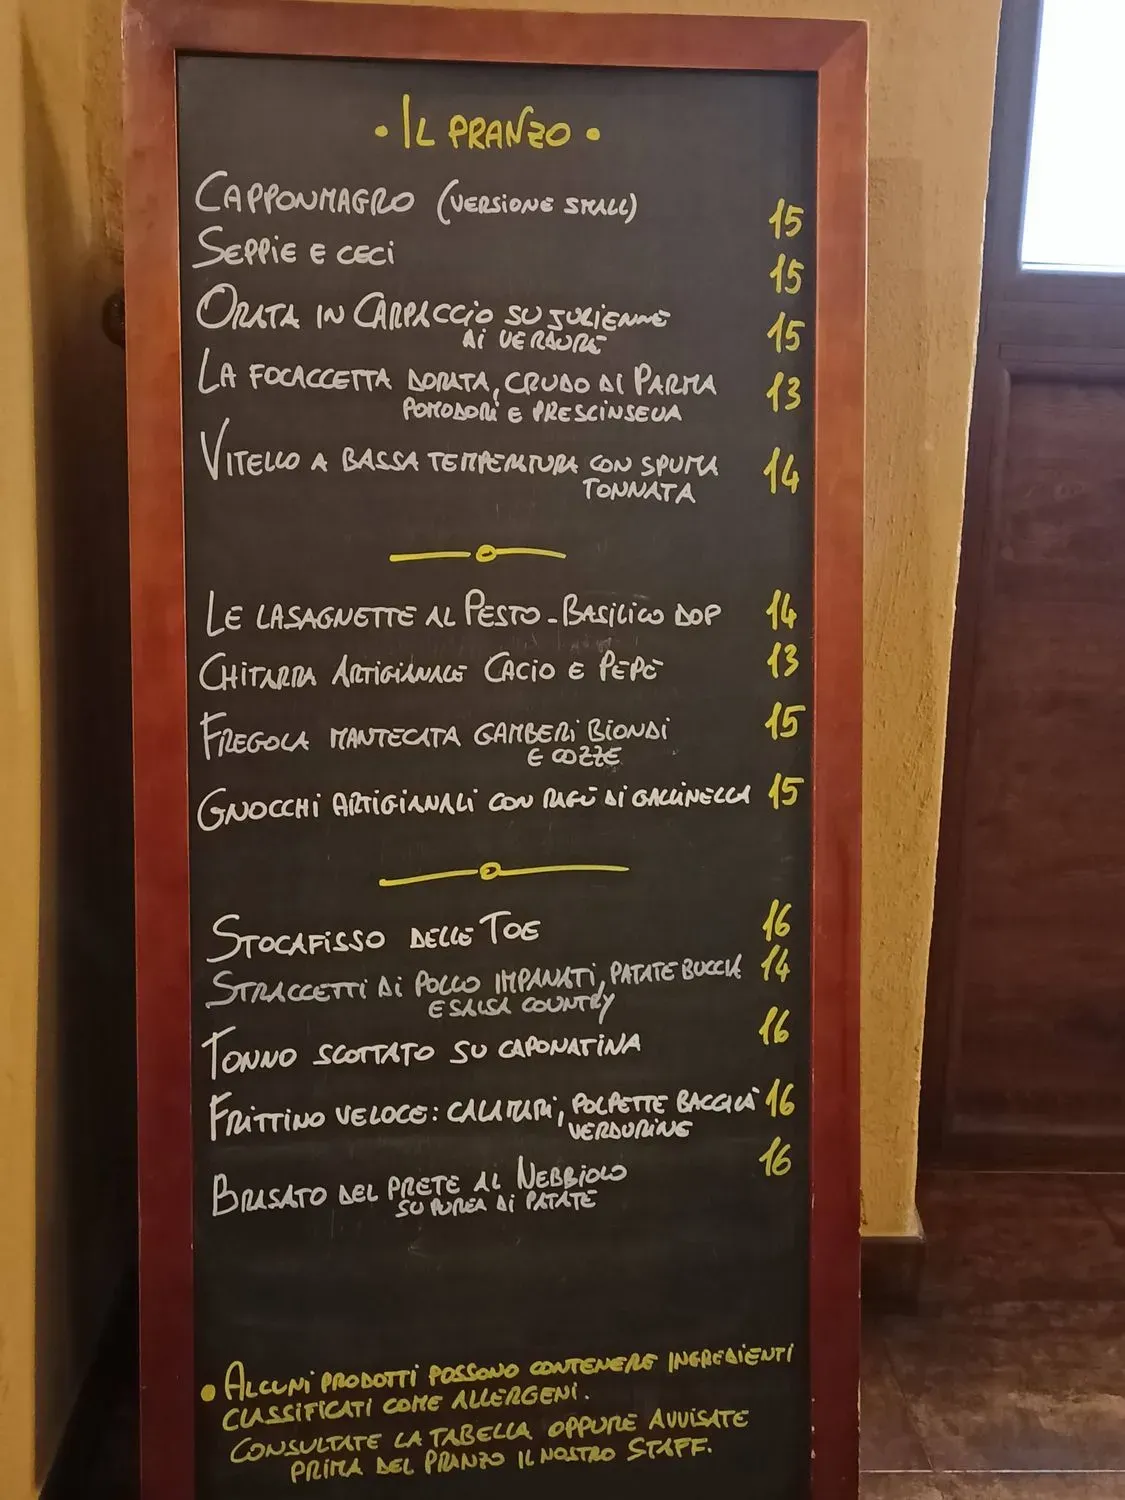 • IL PRANZO •
CAPPONMAGRO (VERSIONE SMALL) 15
SEPPIE E CECI 15
ORATA IN CARPACCIO SU JULIENNE 15
DI VERDURE
LA FOCACCETTA DORATA, CRUDO DI PARMA 13
POMODORI E PRESCINSEUA
VITELLO A BASSA TEMPERATURA CON SPUMA 14
TONNATA
LE LASAGNETTE AL PESTO - BASILICO DOP 14
CHITARRA ARTIGIANALE CACIO E PEPE 13
FREGOLA MANTECATA GAMBERI BIONDI 15
E COZZE
GNOCCHI ARTIGIANALI CON RAGÙ DI GALLINELLA 15
STOCAFISSO DELLE TOE 16
STRACCETTI DI POLLO IMPANATI, PATATE BUCCIA 14
E SALSA COUNTRY
TONNO SCOTTATO SU CAPONATINA 16
FRITTINO VELOCE: CALAMARI, POLPETTE BACCALÀ 16
VERDURINE
BRASATO DEL PRETE AL NEBBIOLO 16
SU PUREA DI PATATE
• ALCUNI PRODOTTI POSSONO CONTENERE INGREDIENTI
CLASSIFICATI COME ALLERGENI.
CONSULTATE LA TABELLA OPPURE AVVISATE
PRIMA DEL PRANZO IL NOSTRO STAFF.